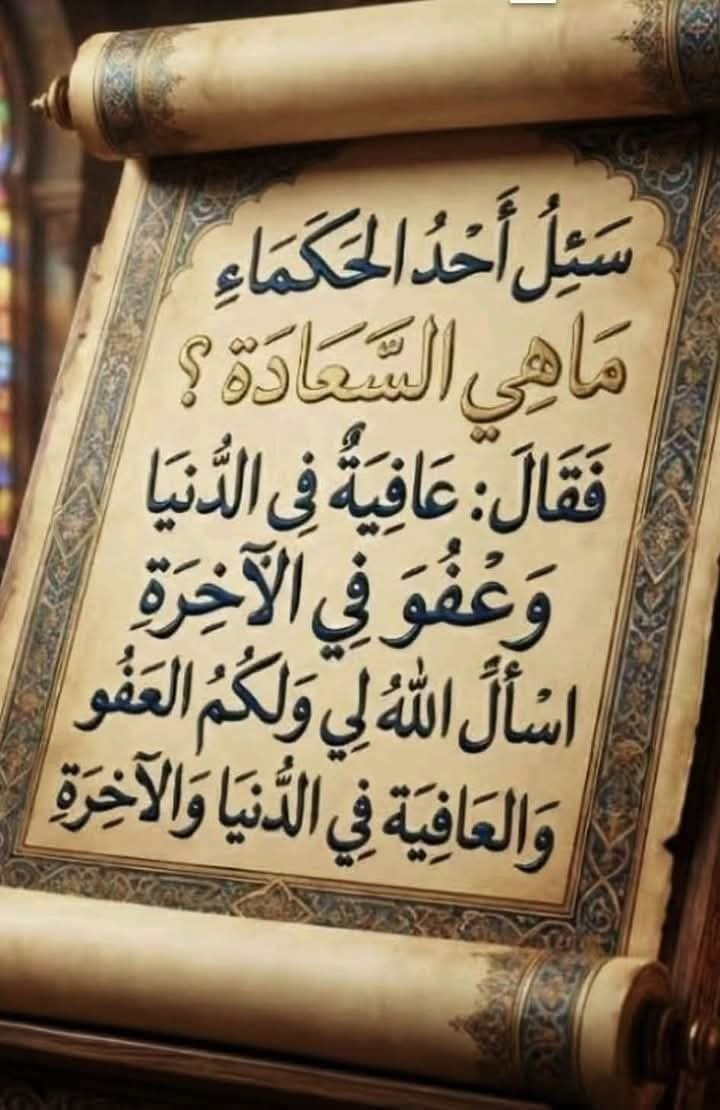 سَئِلُ أَحْدُ الحَكَمَاءِ
مَا هِي السَّعَادَة ؟
فَقَالَ: عَافِيَةٌ فِي الدُّنيَا
وَعْفُوَ فِي الآخِرَةِ
اسْأَلً اللهُ لِي وَلَكُمُ العَفُو
وَالعَافِيَة فِي الدُّنيَا وَالآخِرَةِ